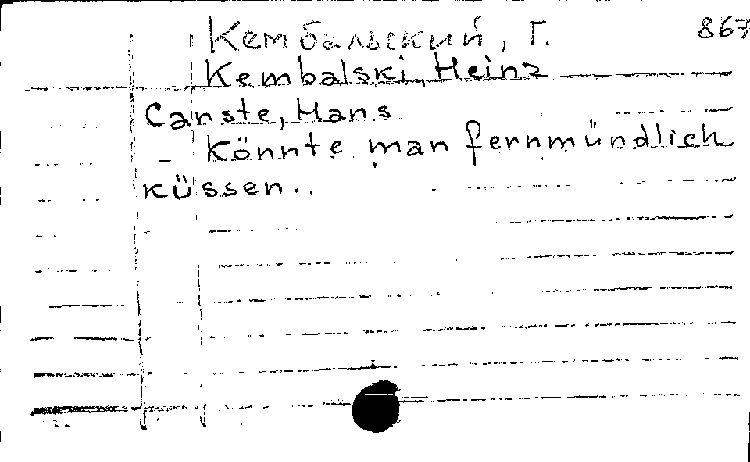 Кембальский, Г. 867
Kembalski, Heinz
Carste, Hans
Könnte man fernmündlich
küssen..